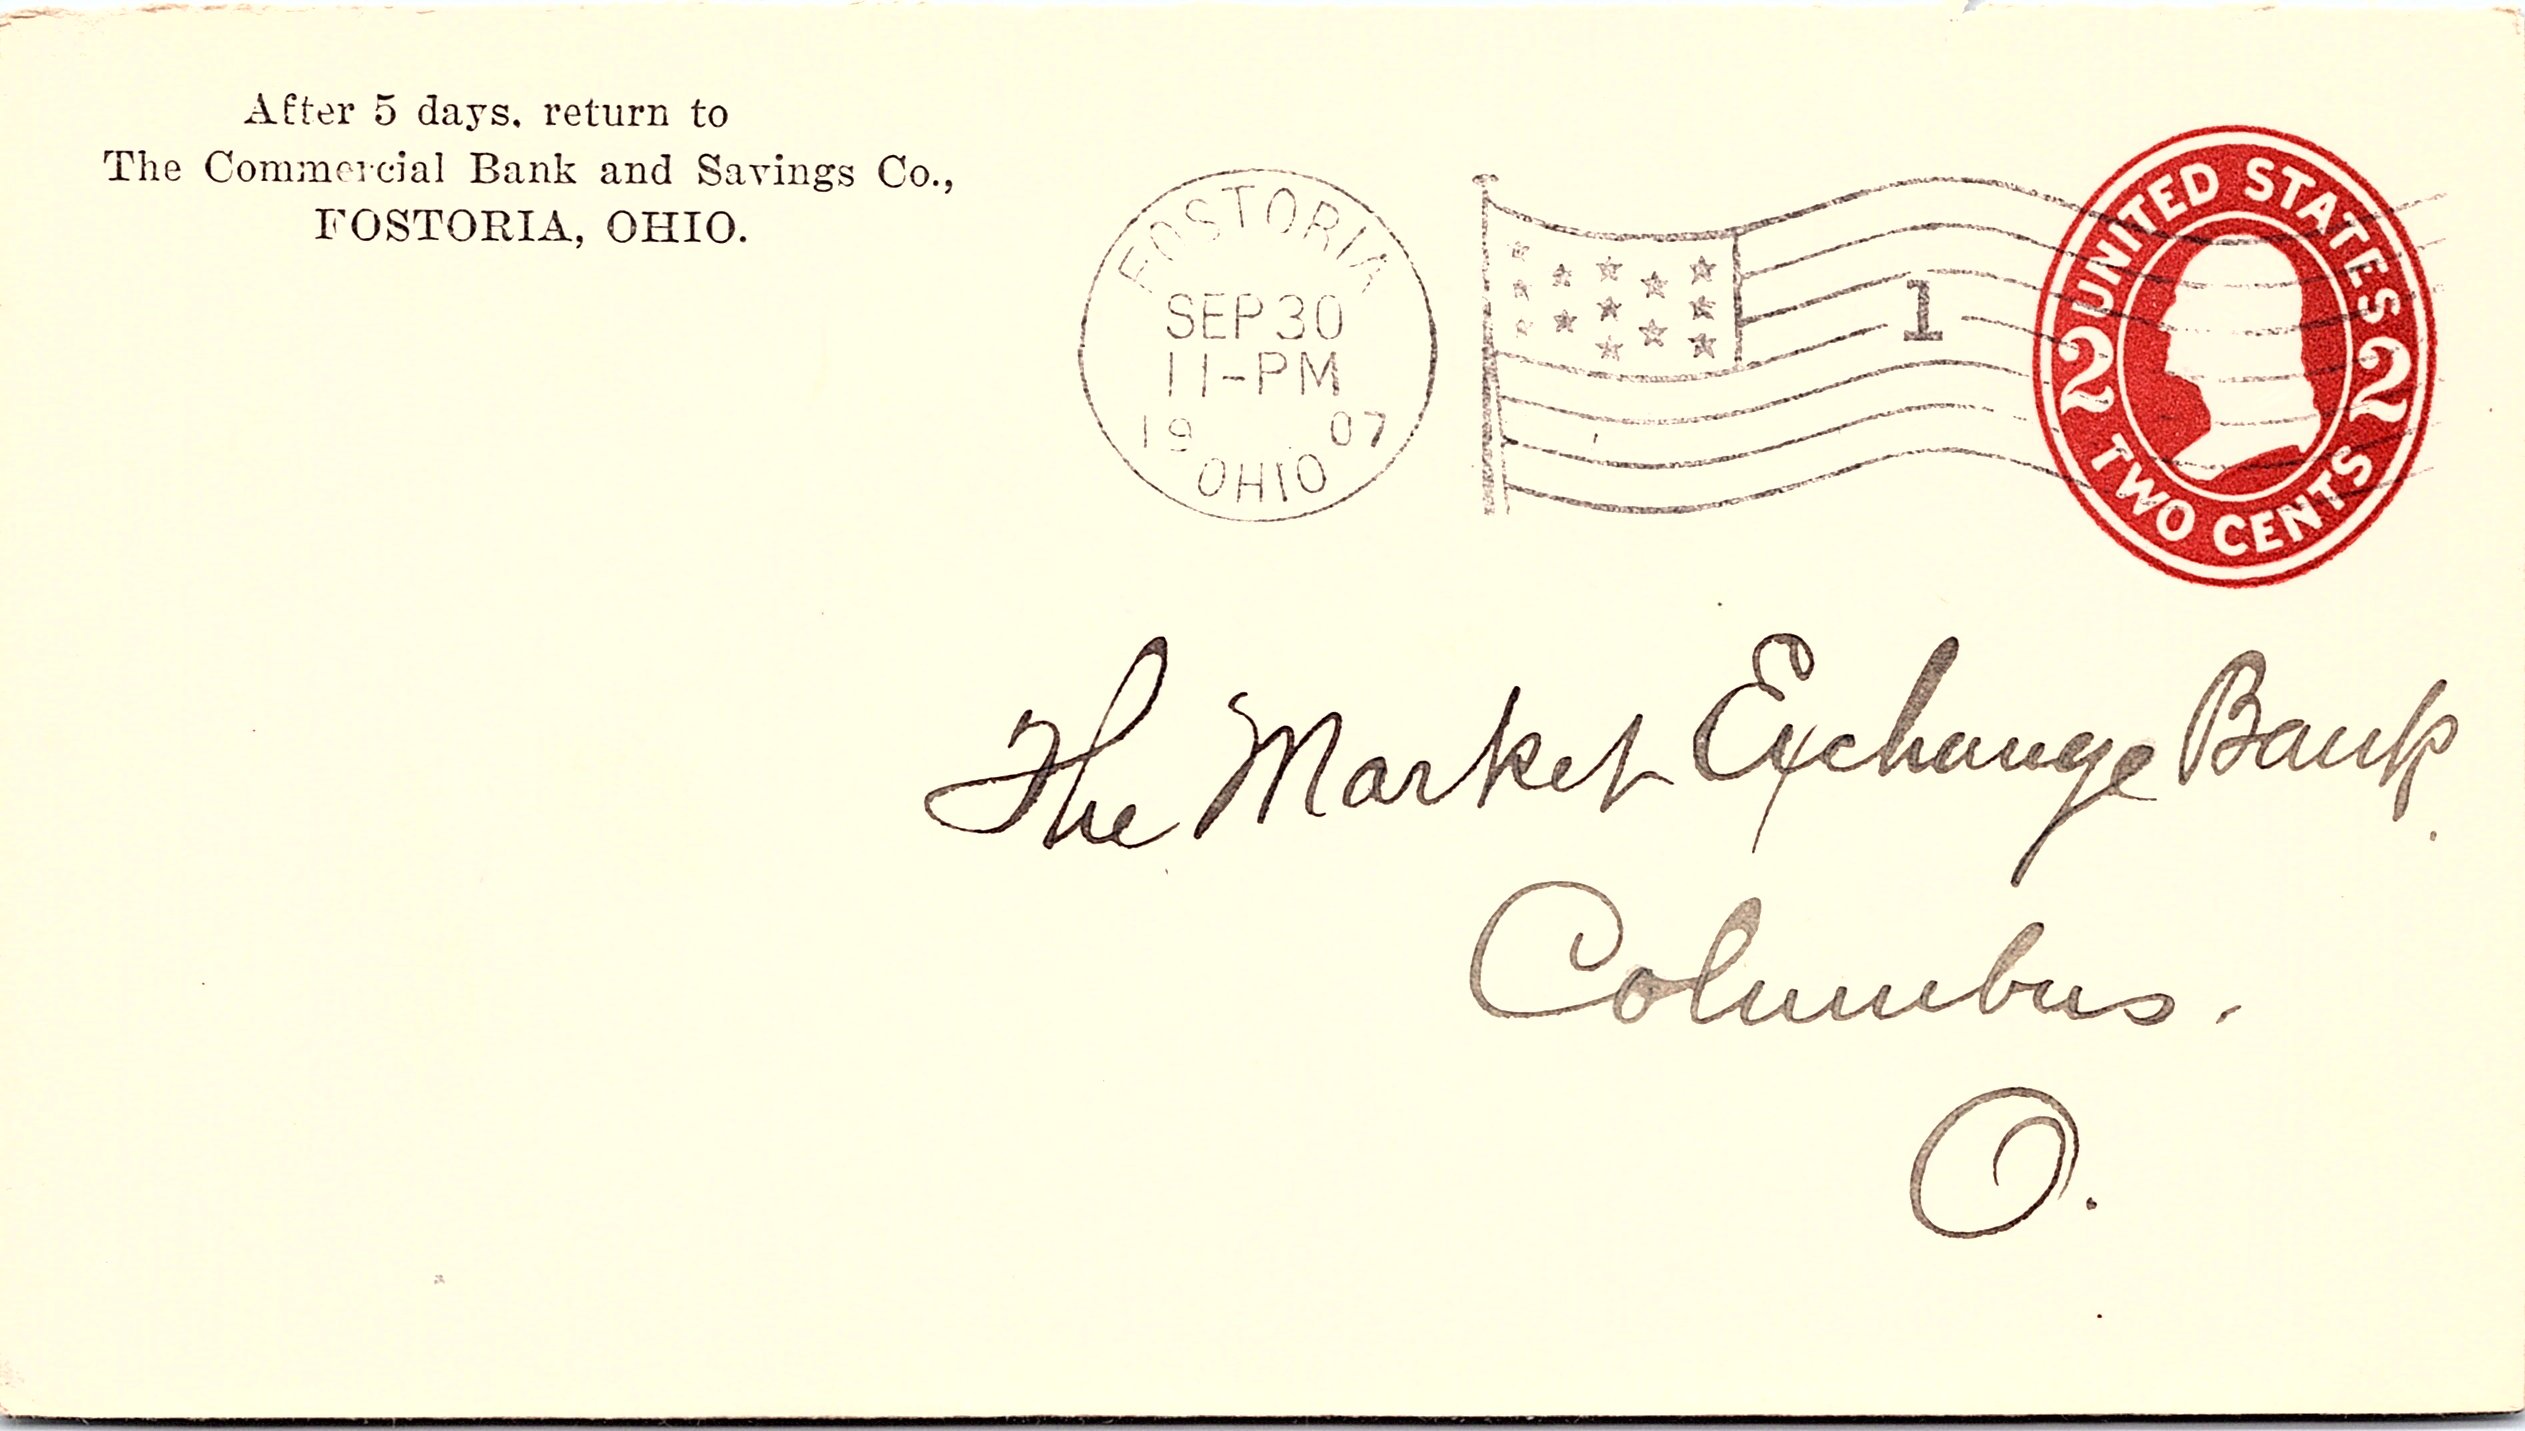 After 5 days, return to
The Commercial Bank and Savings Co.,
FOSTORIA, OHIO.
FOSTORIA
SEP 30
11-PM
19 07
OHIO
1
UNITED STATES
2 2
TWO CENTS
The Market Exchange Bank
Columbus.
O.